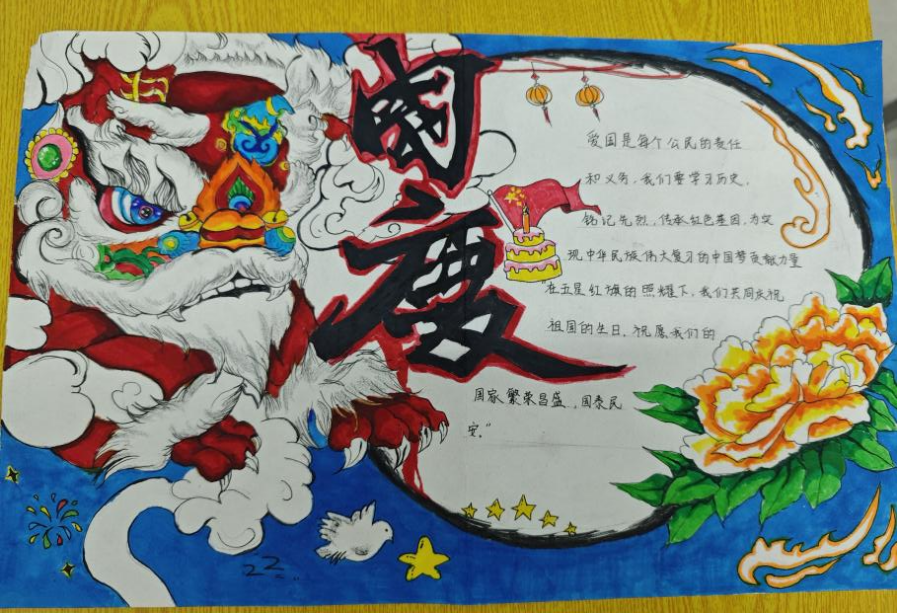 国庆
爱国是每个公民的责任
和义务，我们要学习历史，
铭记先烈，传承红色基因，为实
现中华民族伟大复习的中国梦贡献力量
"在五星红旗的照耀下，我们共同庆祝
祖国的生日，祝愿我们的
国家繁荣昌盛，国泰民
安。"
22